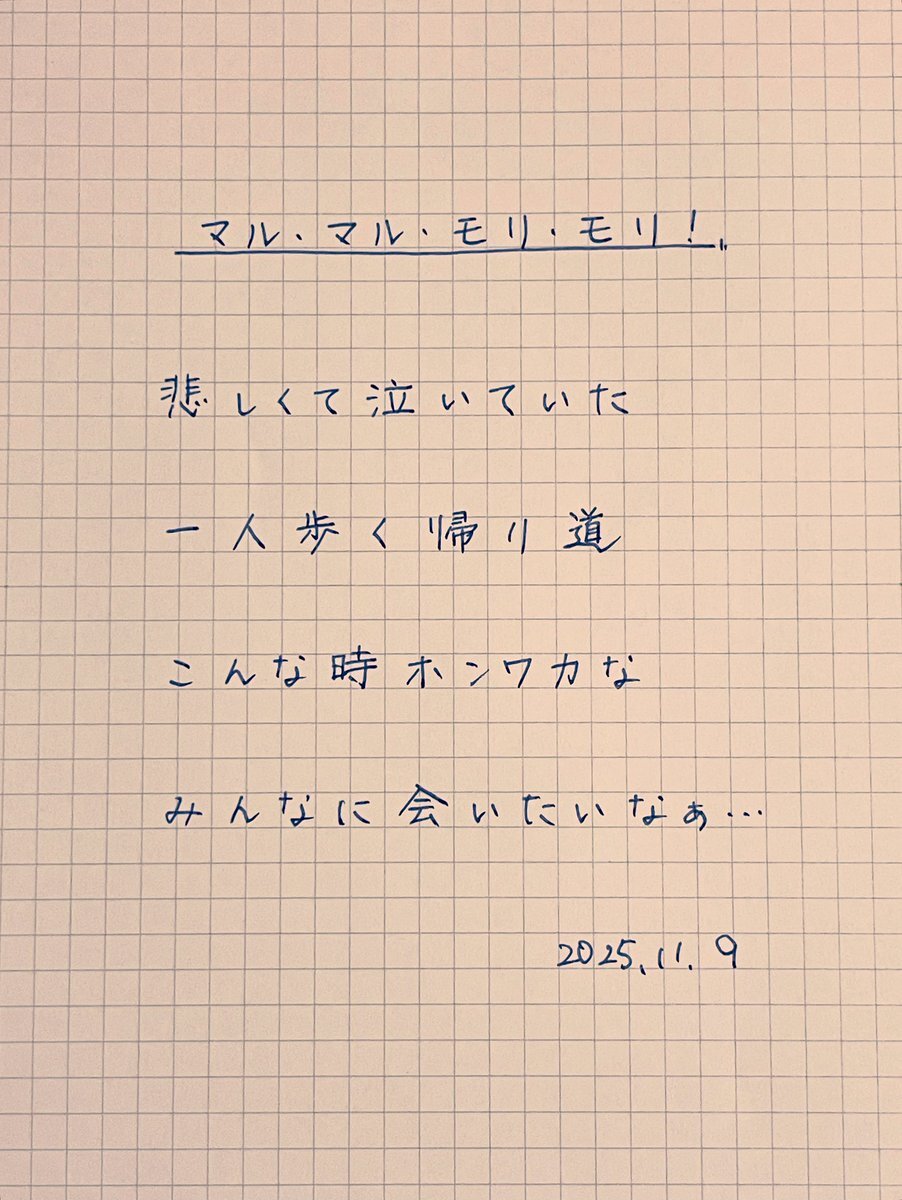 マル・マル・モリ・モリ!
悲しくて泣いていた
一人歩く帰り道
こんな時ホンワカな
みんなに会いたいなぁ…
2025.11.9